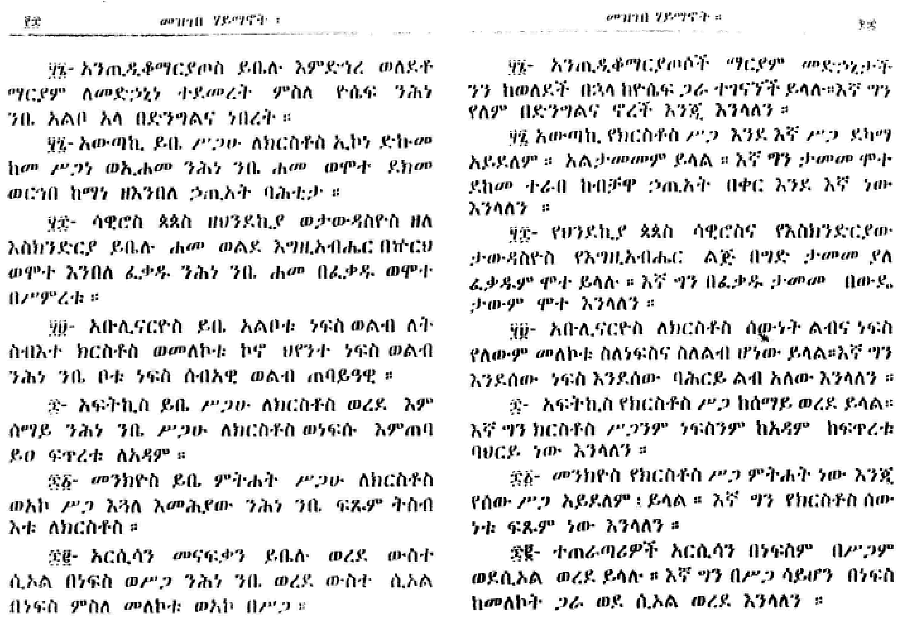 ፸፰ መዝገበ ሃይማኖት ፡
፶፯- አንጢዲቆማርያጦስ ይቤሉ እምድኅረ ወለደቶ
ማርያም ለመድኃኒነ ተደመረት ምስለ ዮሴፍ ንሕነ
ንቤ አልቦ አላ በድንግልና ነበረት ።
፶፯- አውጣኪ ይቤ ሥጋሁ ለክርስቶስ ኢኮነ ድኩመ
ከመ ሥጋነ ወኢሐመ ንሕነ ንቤ ሐመ ወሞተ ደክመ
ወርኅበ ከማነ ዘእንበለ ኃጢአት ባሕቲታ ።
፶፰- ሳዊሮስ ጳጳስ ዘህንደኪያ ወታውዳስዮስ ዘለ
እስክንድርያ ይቤሉ ሐመ ወልደ እግዚአብሔር በኵርህ
ወሞተ እንበለ ፈቃዱ ንሕነ ንቤ ሐመ በፈቃዱ ወሞተ
በሥምረቱ ።
፶፱- አቡሊናርዮስ ይቤ አልቦቱ ነፍስ ወልብ ለት
ስብእተ ክርስቶስ ወመለኮቱ ኮኖ ህየንተ ነፍስ ወልብ
ንሕነ ንቤ ቦቱ ነፍስ ሰብአዊ ወልብ ጠባይዓዊ ።
፷- አፍትኪስ ይቤ ሥጋሁ ለክርስቶስ ወረደ እም
ሰማይ ንሕነ ንቤ ሥጋሁ ለክርስቶስ ወነፍሱ እምጠባ
ይዐ ፍጥረቱ ለአዳም ።
፷፩- መንክዮስ ይቤ ምትሐት ሥጋሁ ለክርስቶስ
ወአኮ ሥጋ እጓለ እመሕያው ንሕነ ንቤ ፍጹም ትስብ
እቱ ለክርስቶስ ።
፷፪- አርሲሳን መናፍቃን ይቤሉ ወረደ ውስተ
ሲኦል በነፍስ ወሥጋ ንሕነ ንቤ ወረደ ውስተ ሲኦል
በነፍስ ምስለ መለኮቱ ወአኮ በሥጋ ።
መዝገበ ሃይማኖት ።
፶፯- አንጢዲቆማርያጦሶች ማርያም መድኃኒታች
ንን ከወለደች በኋላ ከዮሴፍ ጋራ ተገናኘች ይላሉ።እኛ ግን
የለም በድንግልና ኖረች እንጂ እንላለን ።
፶፯ አውጣኪ የክርስቶስ ሥጋ እንደ እኛ ሥጋ ደካማ
አይደለም ። አልታመመም ይላል ። እኛ ግን ታመመ ሞተ
ደከመ ተራበ ከብቻዋ ኃጢአት በቀር እንደ እኛ ነው
እንላለን ።
፶፰- የህንደኪያ ጳጳስ ሳዊሮስና የእስክንድርያው
ታውዳስዮስ የእግዚአብሔር ልጅ በግድ ታመመ ያለ
ፈቃዱም ሞተ ይላሉ ። እኛ ግን በፈቃዱ ታመመ በውዴ
ታውም ሞተ እንላለን ።
፶፱- አቡሊናርዮስ ለክርስቶስ ሰውነት ልብና ነፍስ
የለውም መለኮቱ ስለነፍስና ስለልብ ሆነው ይላል።እኛ ግን
እንደሰው ነፍስ እንደሰው ባሕርይ ልብ አለው እንላለን ።
፷- አፍትኪስ የክርስቶስ ሥጋ ከሰማይ ወረደ ይላል።
እኛ ግን ክርስቶስ ሥጋንም ነፍስንም ከአዳም ከፍጥረቱ
ባህርይ ነው እንላለን ።
፷፩- መንክዮስ የክርስቶስ ሥጋ ምትሐት ነው እንጂ
የሰው ሥጋ አይደለም ፤ ይላል ። እኛ ግን የክርስቶስ ሰው
ነቱ ፍጹም ነው እንላለን ።
፷፪- ተጠራጣሪዎች አርሲሳን በነፍስም በሥጋም
ወደሲኦል ወረደ ይላሉ ። እኛ ግን በሥጋ ሳይሆን በነፍስ
ከመለኮት ጋራ ወደ ሲኦል ወረደ እንላለን ።